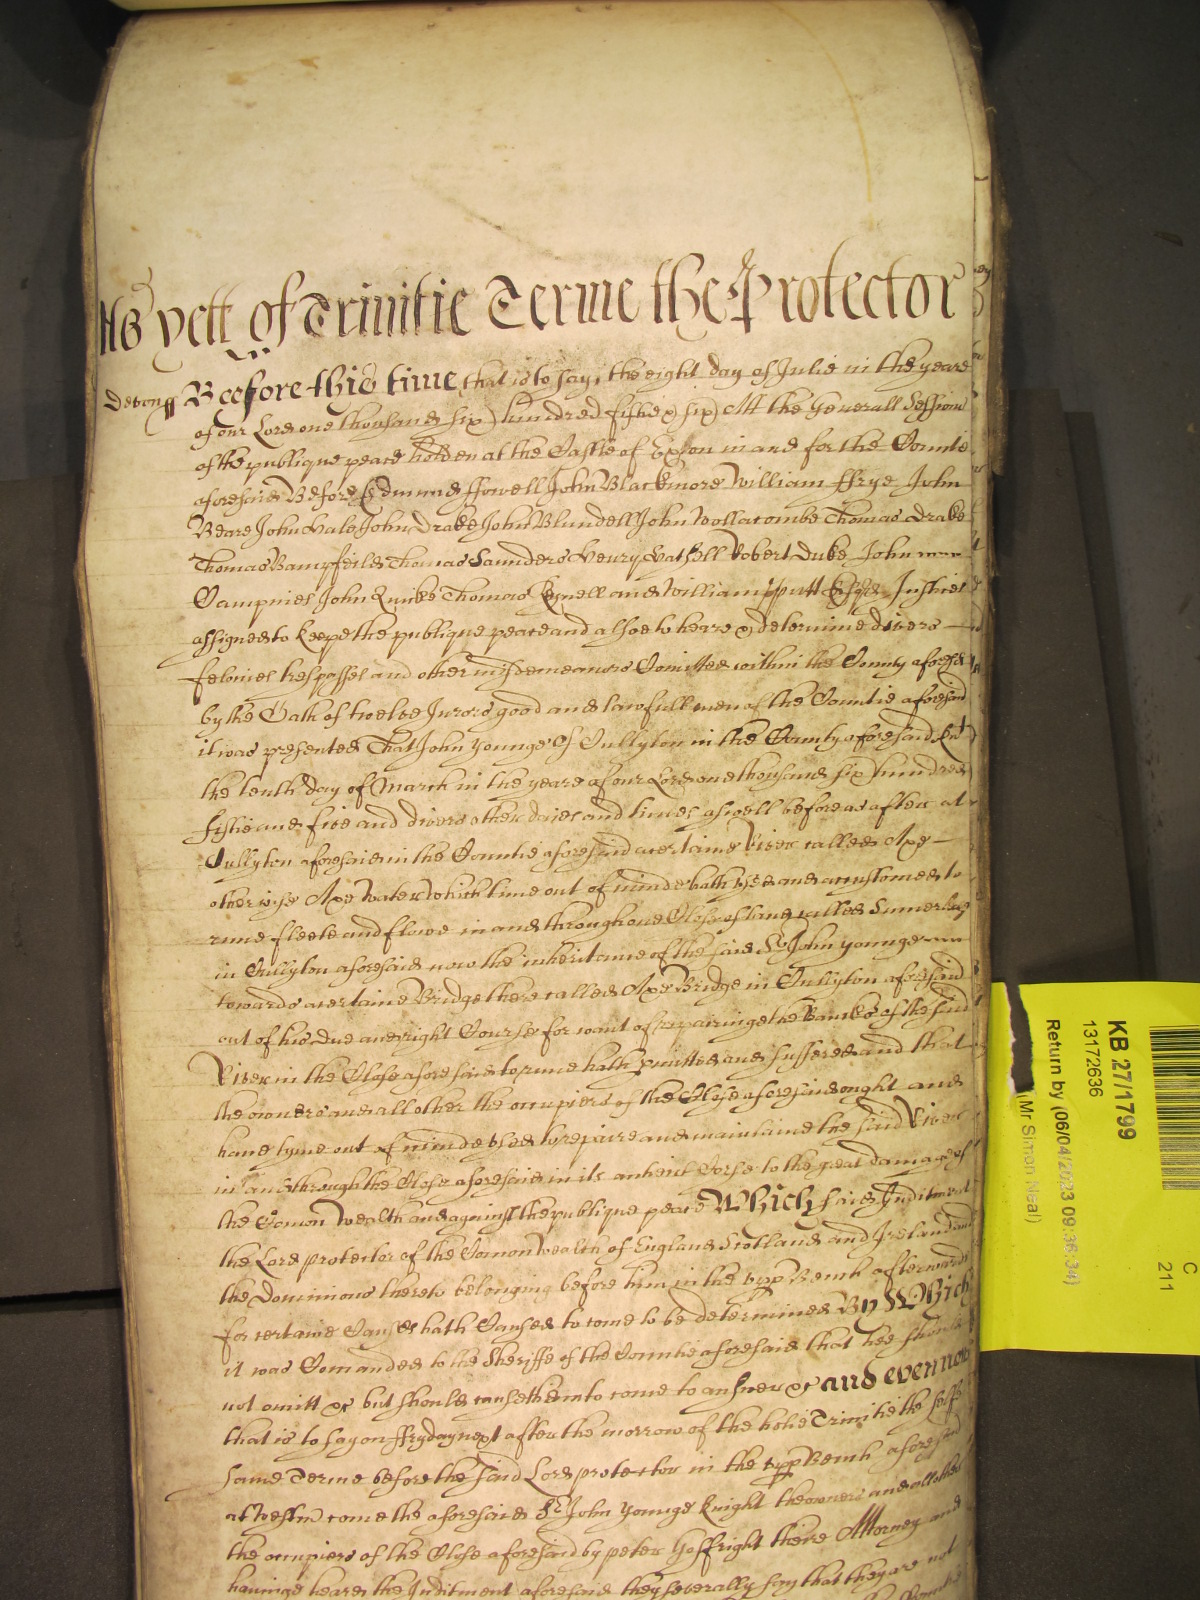 As yett of Trinitie Terme the Protector
Devon ss Beefore this time that is to say, the eight day of Julie in the yeare
of our Lord one thousand six hundred fiftie & six Att the Generall Session
of the publique peace holden at the Castle of Exon in and for the Countie
aforesaid Before Edmund ffowell John Blackmore William ffrye John
Beare John Hale John Drake John Blundell John Wollacombe Thomas Drake
Thomas Bampfeild Thomas Saunders Henry Hatsell Robert Duke John
Champnies John Quicke Thomas Reynell and William Putt Esqrs Justices
assigned to keepe the publique peace and alsoe to heare & determine divers
felonies trespasses and other misdemeanors Comitted within the County aforesd
by the Oath of twelve Jurors good and lawfull men of the Countie aforesaid
it was presented That John Younge Of Cullyton in the County aforesaid Knt
the tenth day of March in the yeare of our Lord one thousand six hundred
fiftie and five and divers other daies and times aswell before as after at
Cullyton aforesaid in the Countie aforesaid a certaine River called Axe
otherwise Axe Water which time out of minde hath used and accustomed to
runne fleete and flowe in and through one Close of land called Sumerlay
in Cullyton aforesaid now the inheritance of the said Sr John Younge
towards a certaine Bridge there called Axe Bridge in Cullyton aforesaid
out of his due and right Course for want of repairinge the Bancks of the said
River in the Close aforesaid to runne hath pmitted and suffered and that
the owners and all other the occupiers of the Close aforesaid ought and
have tyme out of minde used to repaire and maintaine the said River
in and through the Close aforesaid in its antient Corse to the great damage of
the Comon Wealth and against the publique peace Which said Inditement
the Lord protector of the Comon Wealth of England Scotland and Ireland and
the Dominions thereto belonging before him in the upp Bench afterwards
for certaine Causes hath Caused to come to be determined By Which
it was Comanded to the Sheriffe of the Countie aforesaid that hee should
not omitt &c but should cause them to come to answer &c and even now
that is to say on ffryday next after the morrow of the holie Trinitie the self
same Terme before the said Lord protector in the upp Bench aforesaid
at Westm come the aforesaid Sr John Younge Knight the owners and all other
the occupiers of the Close aforesaid by peter Goffright theire Attorney and
havinge heard the Inditment aforesaid they severally say that they are not
KB 27/1799
13172636
Return by (06/04/2023 09:36:34)
(Mr Simon Neal)
C
211